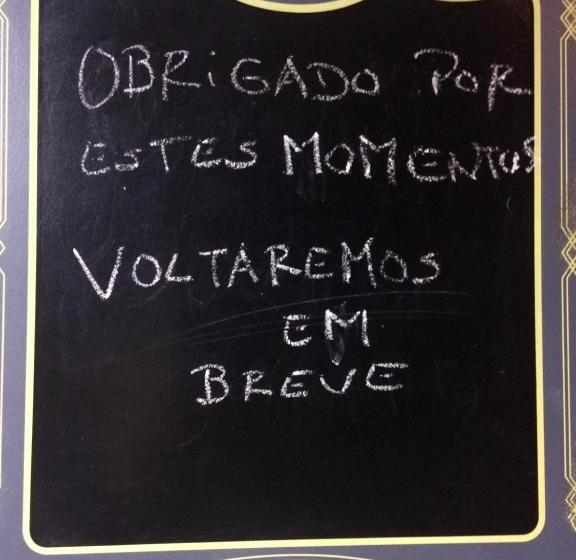 OBRiGADO POR
ESTES MOMENTOS
VOLTAREMOS
EM
BREVE